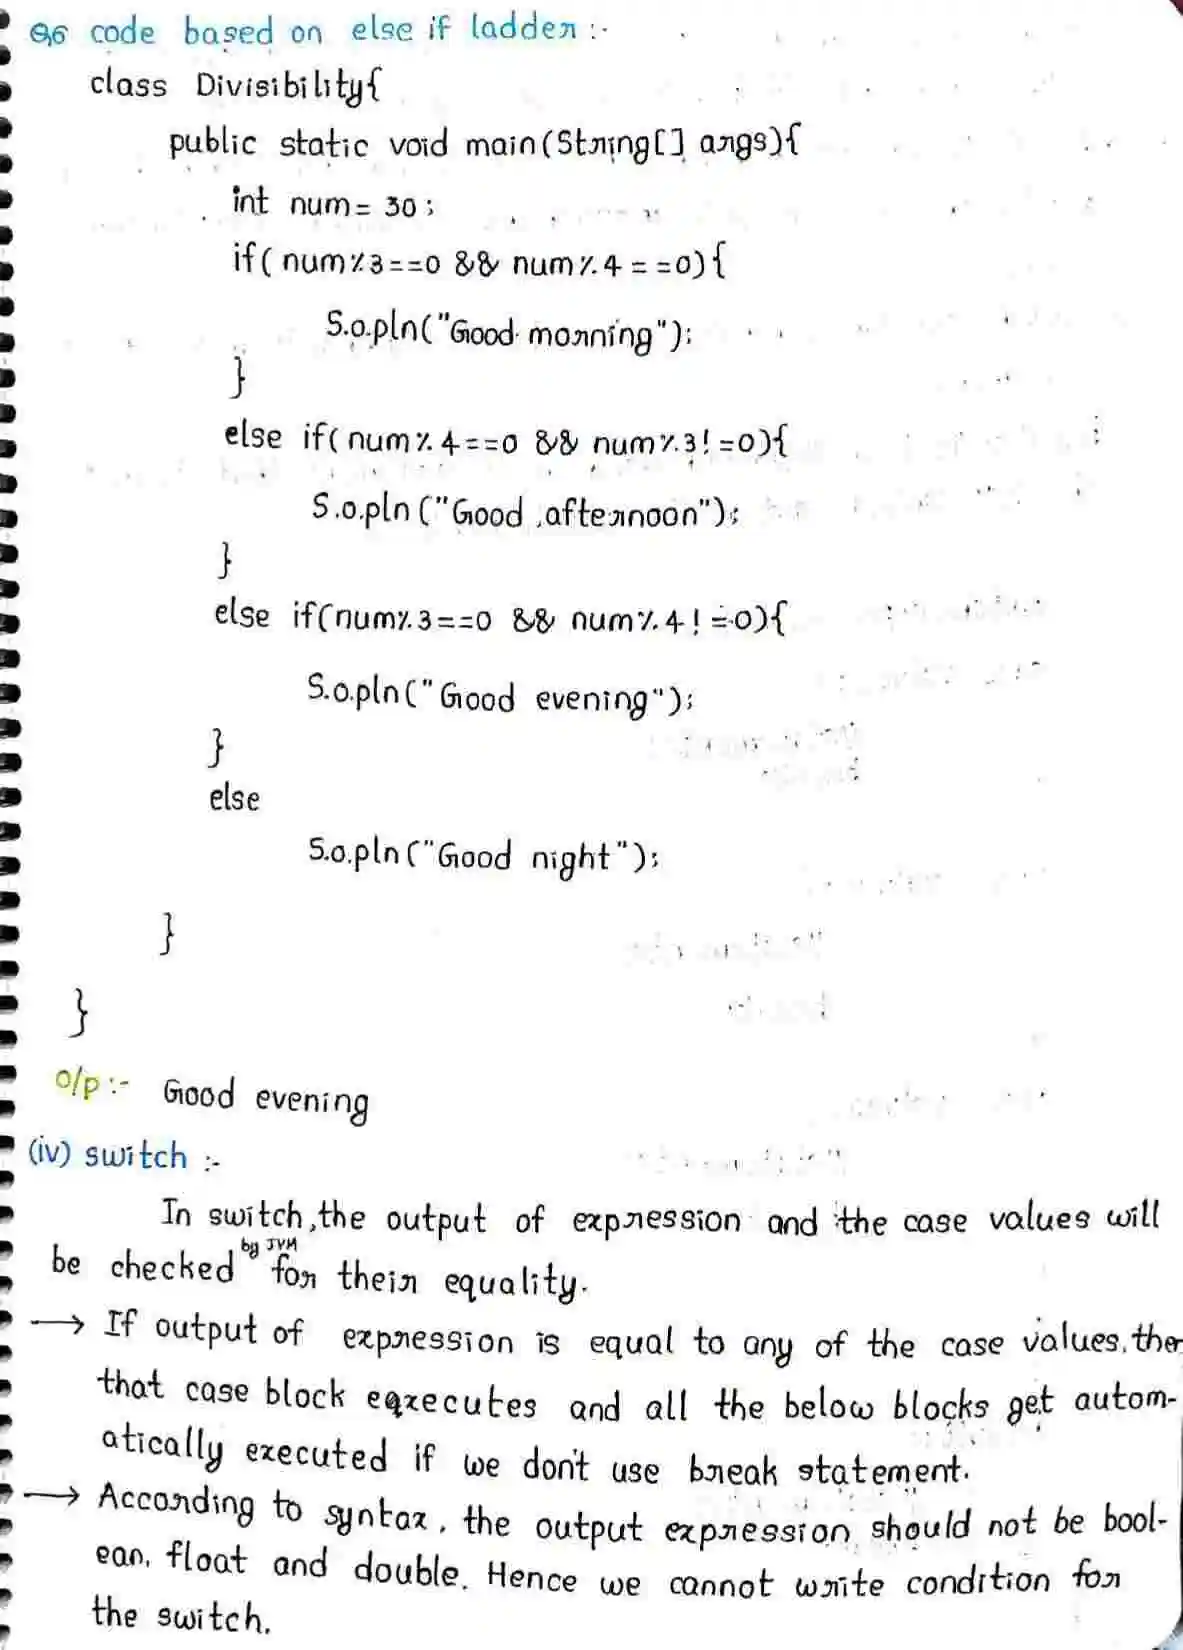 Q6 code based on else if ladder :-
class Divisibility{
public static void main(String[] args){
int num= 30;
if( num%3==0 && num%4==0){
S.o.pln("Good morning");
}
else if( num%4==0 && num%3!=0){
S.o.pln("Good afternoon");
}
else if(num%3==0 && num%4!=0){
S.o.pln("Good evening");
}
else
S.o.pln("Good night");
}
}
o/p :- Good evening
(iv) switch :-
In switch,the output of expression and the case values will
be checked by JVM for their equality.
→ If output of expression is equal to any of the case values, then
that case block eqxecutes and all the below blocks get autom-
atically executed if we don't use break statement.
→ According to syntax, the output expression should not be bool-
ean, float and double. Hence we cannot write condition for
the switch.